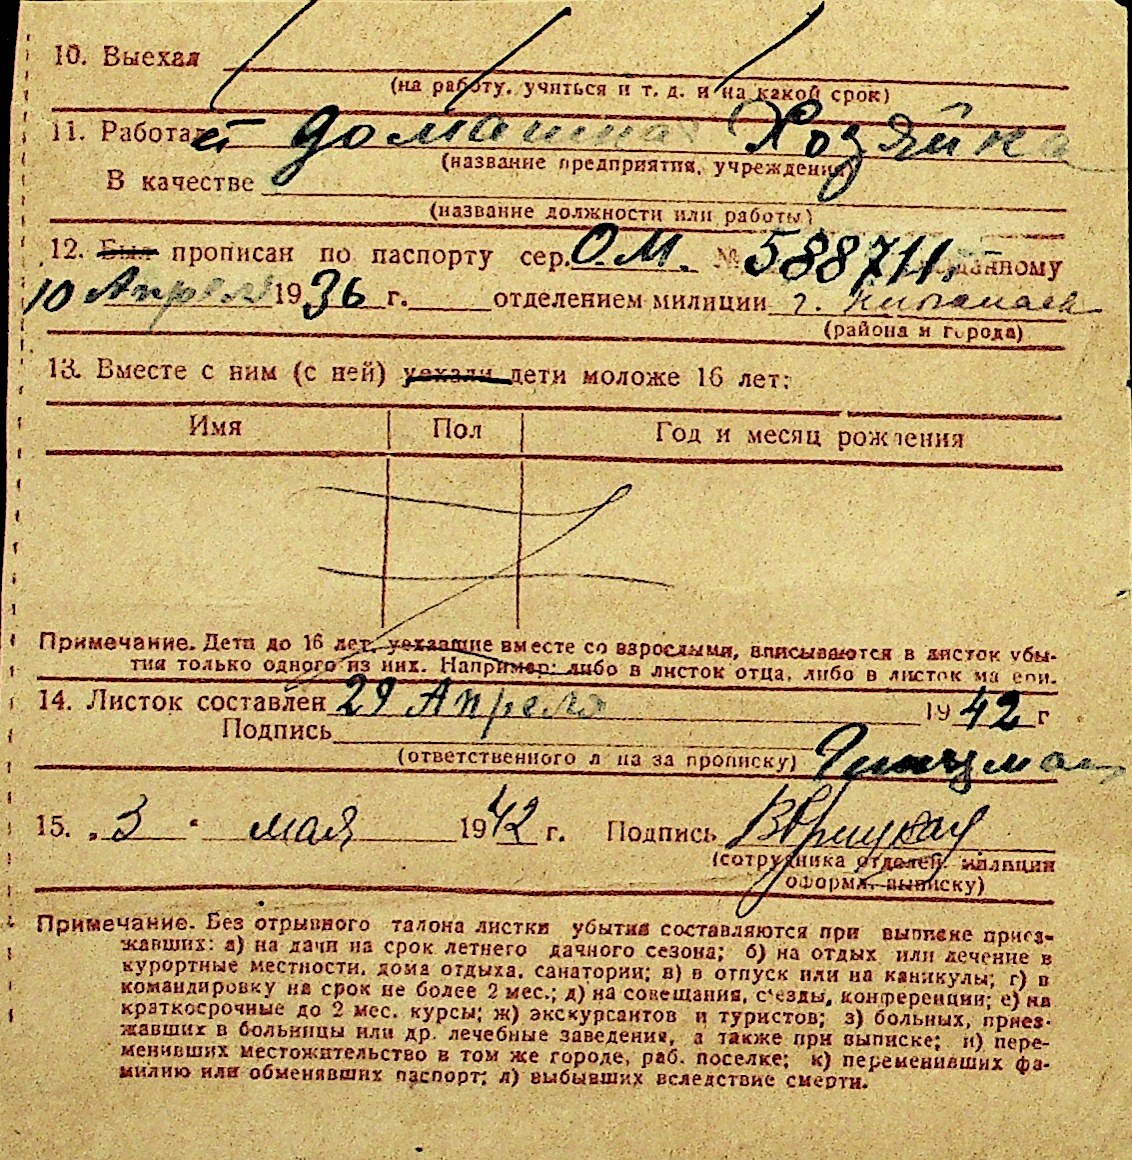 10. Выехал
(на работу, учиться и т. д. и на какой срок)
11. Работает домашная Хозяйка
(название предприятия, учреждения)
В качестве
(название должности или работы)
12. Был прописан по паспорту сер. О.М. № 588711, выданному
10 Апреля 1936 г. отделением милиции г.
(района и города)
13. Вместе с ним (с ней) уехали дети моложе 16 лет:
Имя Пол Год и месяц рождения
Примечание. Дети до 16 лет, уехавшие вместе со взрослыми, вписываются в листок убы-
тия только одного из них. Например: либо в листок отца, либо в листок матери.
14. Листок составлен 29 Апреля 1942 г
Подпись
(ответственного лица за прописку)
15. „3“ мая 1942 г. Подпись
(сотрудника отделен. милиции
оформл. выписку)
Примечание. Без отрывного талона листки убытия составляются при выписке приез-
жавших: а) на дачи на срок летнего дачного сезона; б) на отдых или лечение в
курортные местности, дома отдыха, санатории; в) в отпуск или на каникулы; г) в
командировку на срок не более 2 мес.; д) на совещания, съезды, конференции; е) на
краткосрочные до 2 мес. курсы; ж) экскурсантов и туристов; з) больных, приез-
жавших в больницы или др. лечебные заведения, а также при выписке; и) пере-
менивших местожительство в том же городе, раб. поселке; к) переменивших фа-
милию или обменявших паспорт; л) выбывших вследствие смерти.